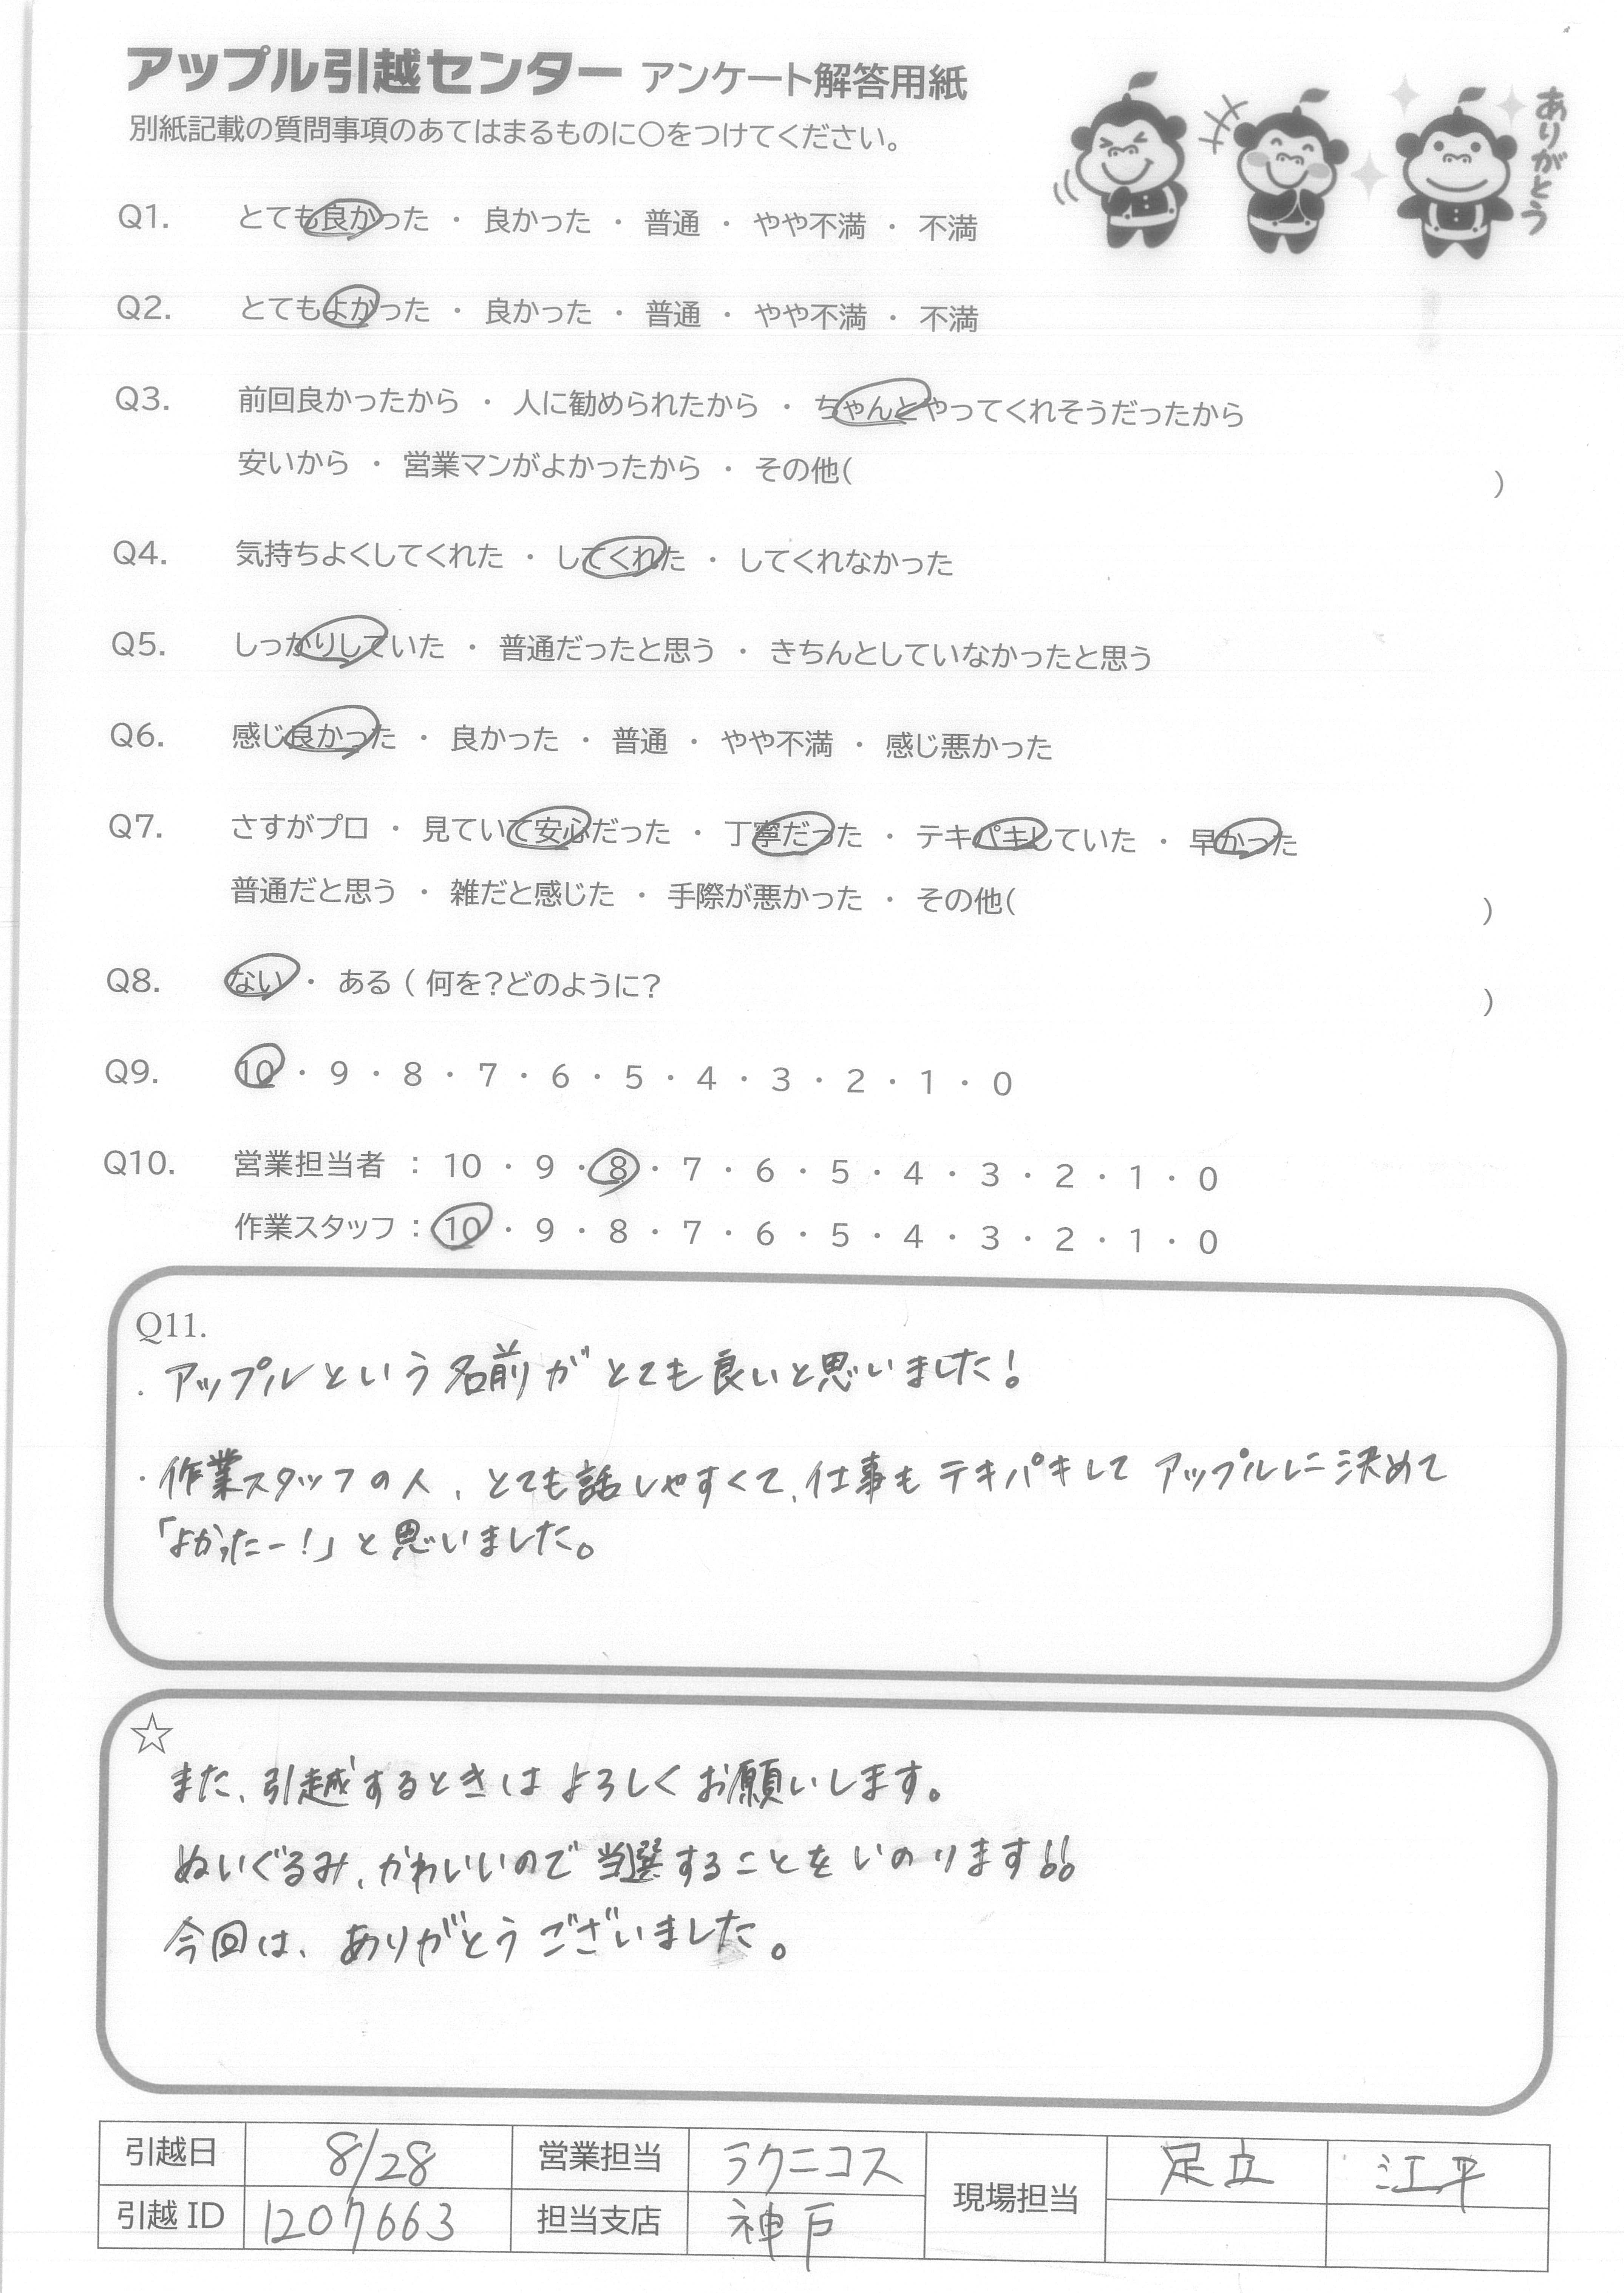 アップル引越センター アンケート解答用紙
別紙記載の質問事項のあてはまるものに○をつけてください。
ありがとう
Q1. とても良かった ・ 良かった ・ 普通 ・ やや不満 ・ 不満
Q2. とてもよかった ・ 良かった ・ 普通 ・ やや不満 ・ 不満
Q3. 前回良かったから ・ 人に勧められたから ・ ちゃんとやってくれそうだったから
安いから ・ 営業マンがよかったから ・ その他( )
Q4. 気持ちよくしてくれた ・ してくれた ・ してくれなかった
Q5. しっかりしていた ・ 普通だったと思う ・ きちんとしていなかったと思う
Q6. 感じ良かった ・ 良かった ・ 普通 ・ やや不満 ・ 感じ悪かった
Q7. さすがプロ ・ 見ていて安心だった ・ 丁寧だった ・ テキパキしていた ・ 早かった
普通だと思う ・ 雑だと感じた ・ 手際が悪かった ・ その他( )
Q8. ない ・ ある ( 何を?どのように? )
Q9. 10 ・ 9 ・ 8 ・ 7 ・ 6 ・ 5 ・ 4 ・ 3 ・ 2 ・ 1 ・ 0
Q10. 営業担当者 : 10 ・ 9 ・ 8 ・ 7 ・ 6 ・ 5 ・ 4 ・ 3 ・ 2 ・ 1 ・ 0
作業スタッフ : 10 ・ 9 ・ 8 ・ 7 ・ 6 ・ 5 ・ 4 ・ 3 ・ 2 ・ 1 ・ 0
Q11.
・アップルという名前がとても良いと思いました!
・作業スタッフの人、とても話しやすくて、仕事もテキパキしてアップルに決めて
「よかったー!」と思いました。
☆
また、引越するときはよろしくお願いします。
ぬいぐるみ、かわいいので当選することをいのります!!
今回は、ありがとうございました。
引越日 8/28 営業担当 ラクニコス 現場担当 足立 江平
引越ID 1207663 担当支店 神戸